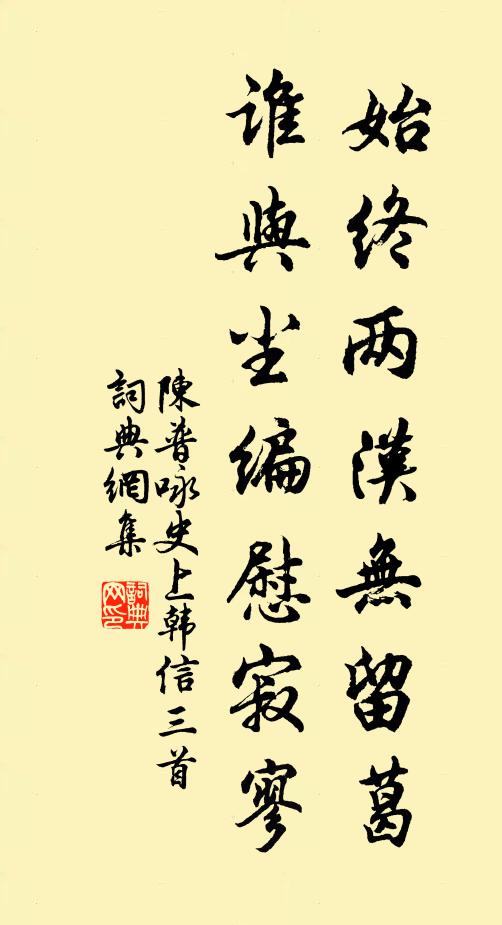 始终两漢無留葛
谁與尘编慰寂寥
陳普咏史上韩信三首
詞典網集
詞典网印